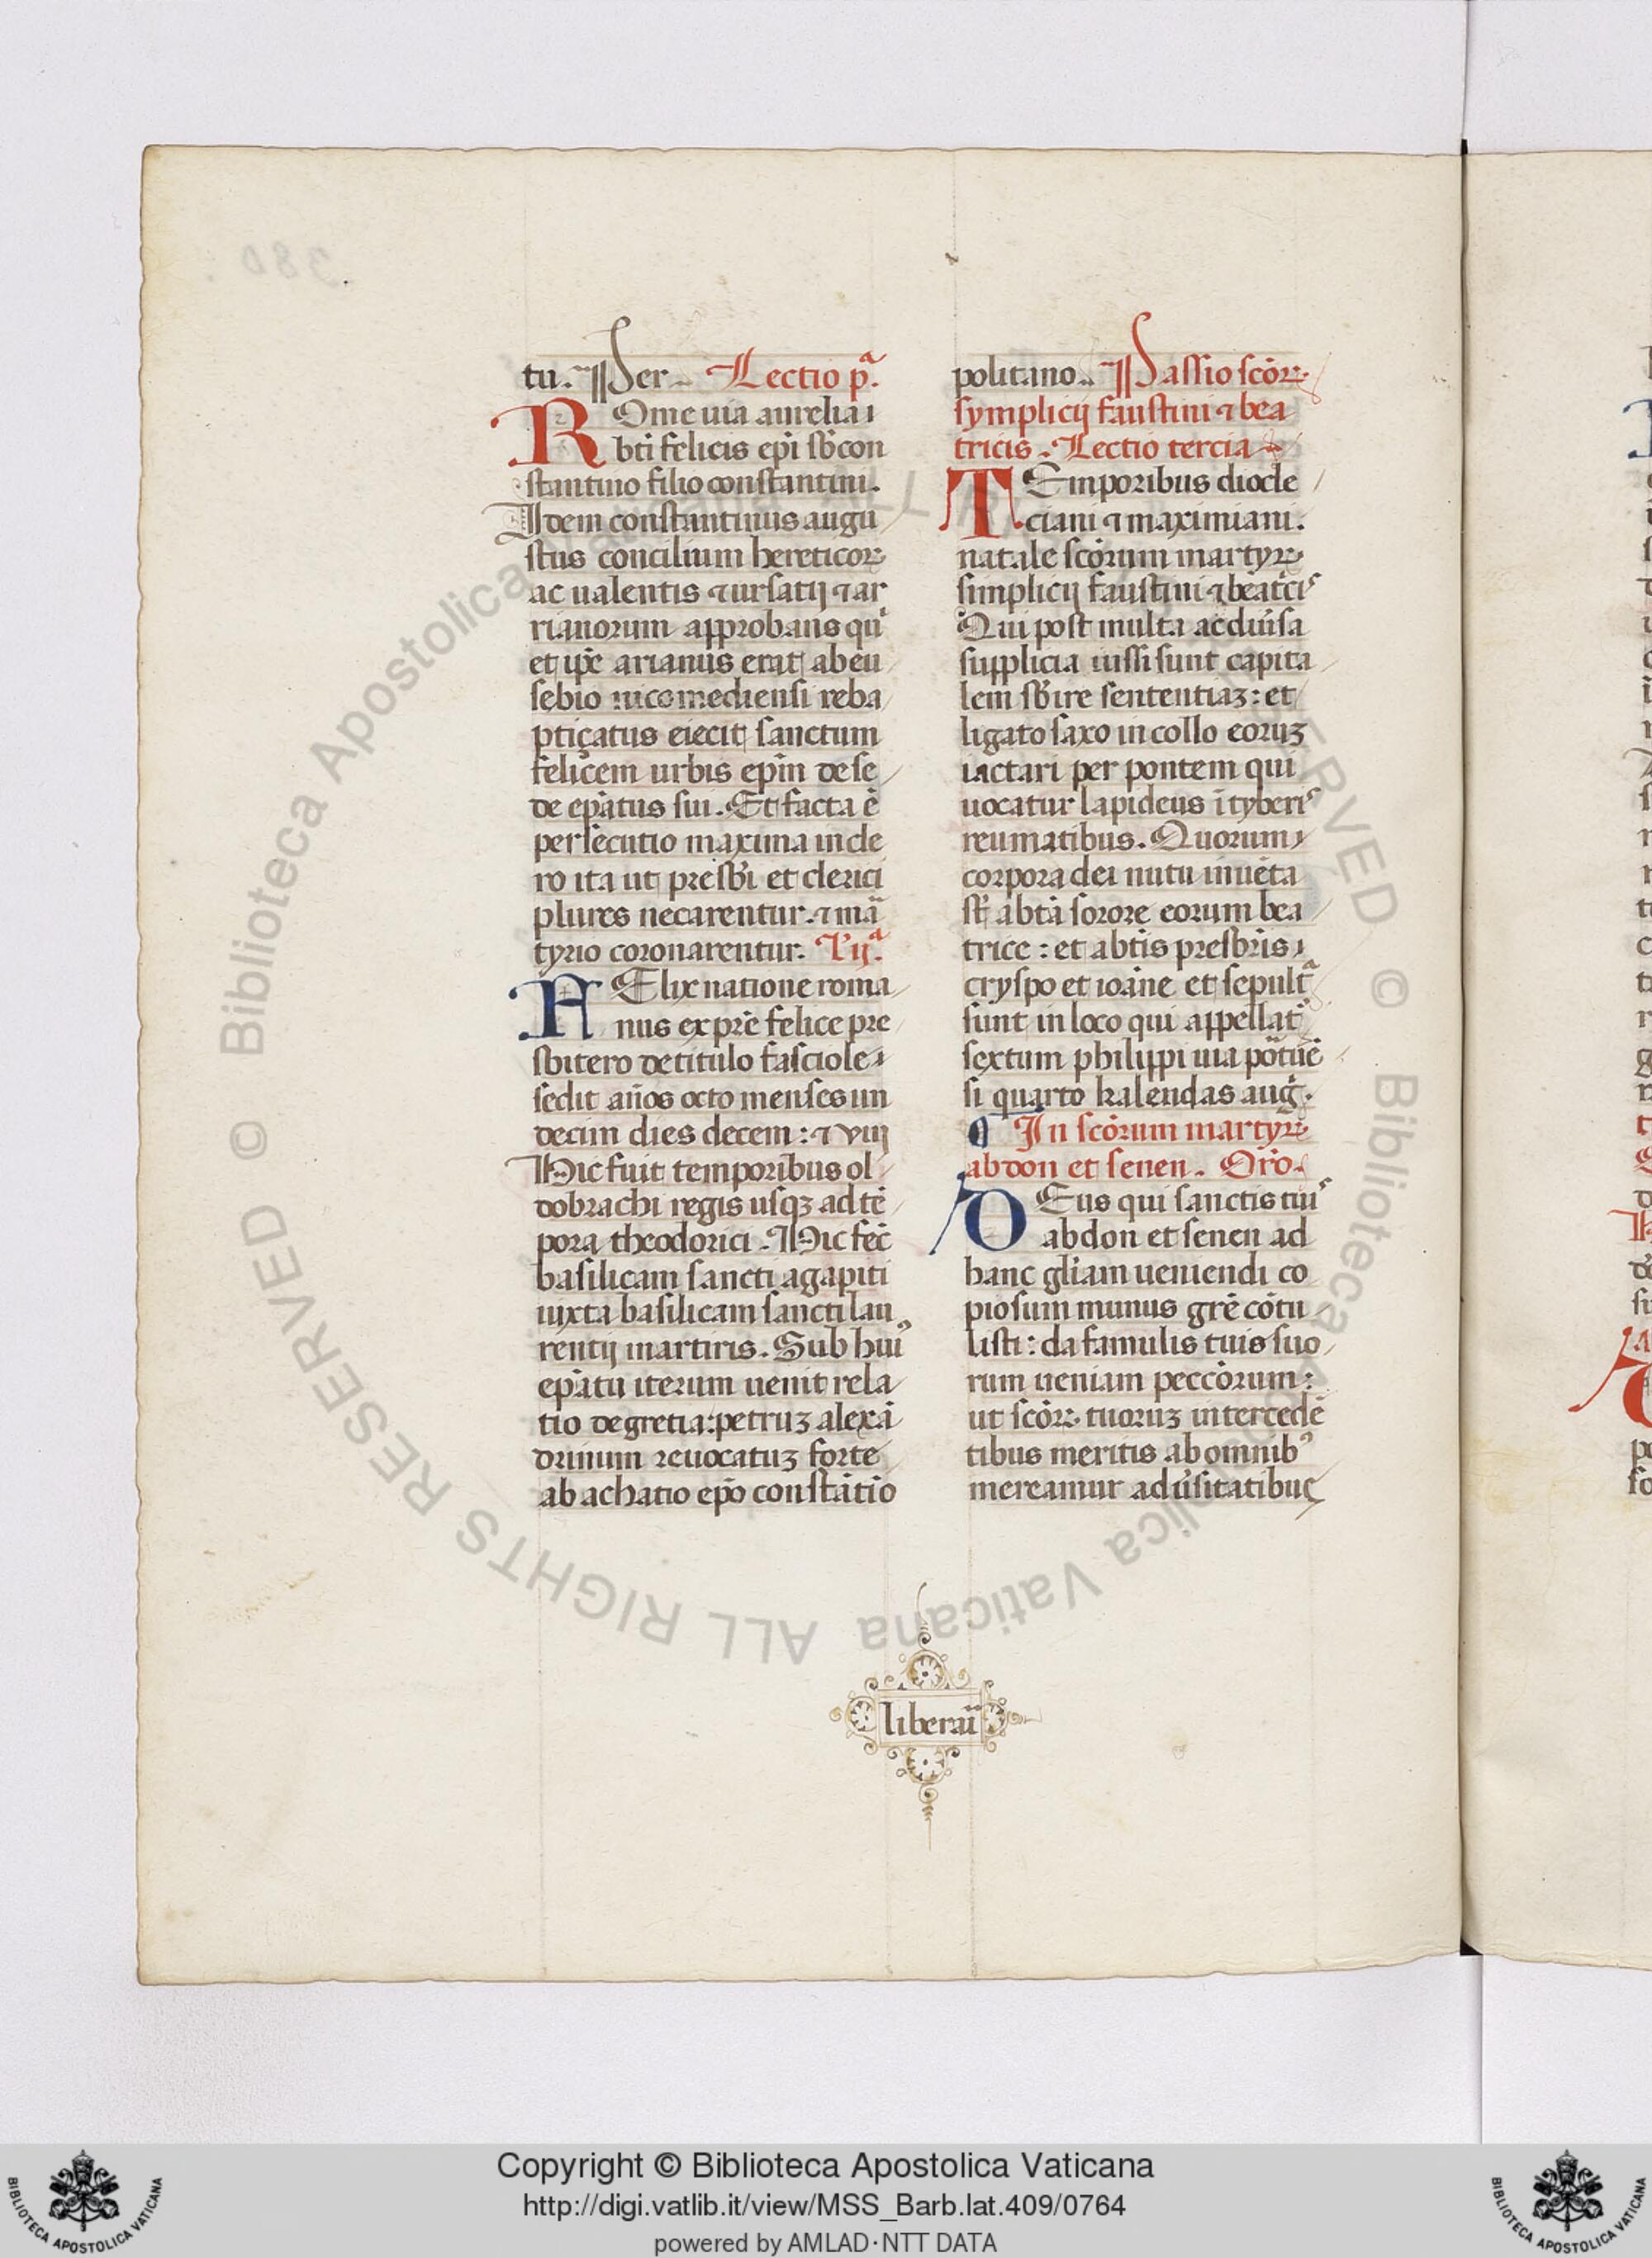 tu. Per. Lectio pᵃ.
ROme uia aurelia ı
bti᷎ felicis epī sb̄ con
stantino filio constantini.
Idem constantinus augu
stus concilium hereticoꝝ
ac ualentis ⁊ ursatij ⁊ ar
rianorum approbans quⁱ
et ip̄e arianus erat ab eu
sebio nicomediensi reba
pticatus eiecit sanctum
felicem urbis ep̄m de se
de ep̄atus sui. Et facta ē
persecutio maxima in cle
ro ita ut presb̄i et clerici
plures necarentur. ⁊ maͣ
tyrio coronarentur. L'ijᵃ.
FElix natione roma
nus ex pr̄e felice pre
sbitero de titulo fasciole ı
sedit an̄os octo menses un
decim dies decem: ⁊ viij
Hic fuit temporibus ol
dobrachi regis usqꝫ ad tē
pora theodorici. Hic fec̄
basilicam sancti agapiti
iuxta basilicam sancti lau
rentij martiris. Sub huiꝰ
ep̄atu iterum uenit rela
tio de gretia: petruꝫ alexā
drinum reuocatuꝫ forte
ab achatio ep̄o constātio
politano.. Passio sc̄oꝝ.
symplicij faustini ⁊ bea
tricis. Lectio tercia
TEmporibus diocle
ciani ⁊ maximiani.
natale sc̄orum martyꝝ
simplicij faustini ⁊ beatⁱciˢ
Qui post multa ac diu᷎sa
supplicia iussi sunt capita
lem sb̄ire sententiaꝫ: et
ligato saxo in collo eoruꝫ
iactari per pontem qui
uocatur lapideus ī tyberiˢ
reumatibus. Quorum ı
corpora dei nutu inuēta
st̄ ab tā sorore eorum bea
trice: et ab tīs presbr̄is ı
cryspo et ioāne et sepultᵃ
sunt in loco qui appellatᷣ
sextum philippi uia pōtuē
si quarto kalendas auḡ.
¶ In sc̄orum martyꝝ
abdon et senen. Or̄o.
DEus qui sanctis tuiˢ
abdon et senen ad
hanc gl̄iam ueniendi co
piosum munus gr̄e cōtu
listi: da famulis tuis suo
rum ueniam pecc̄orum:
ut sc̄oꝝ. tuoruꝫ intercedē
tibus meritis ab omnibꝰ
mereamur adu᷎sitatibuˢ
liberaı̄
Copyright © Biblioteca Apostolica Vaticana
http://digi.vatlib.it/view/MSS_Barb.lat.409/0764
powered by AMLAD·NTT DATA